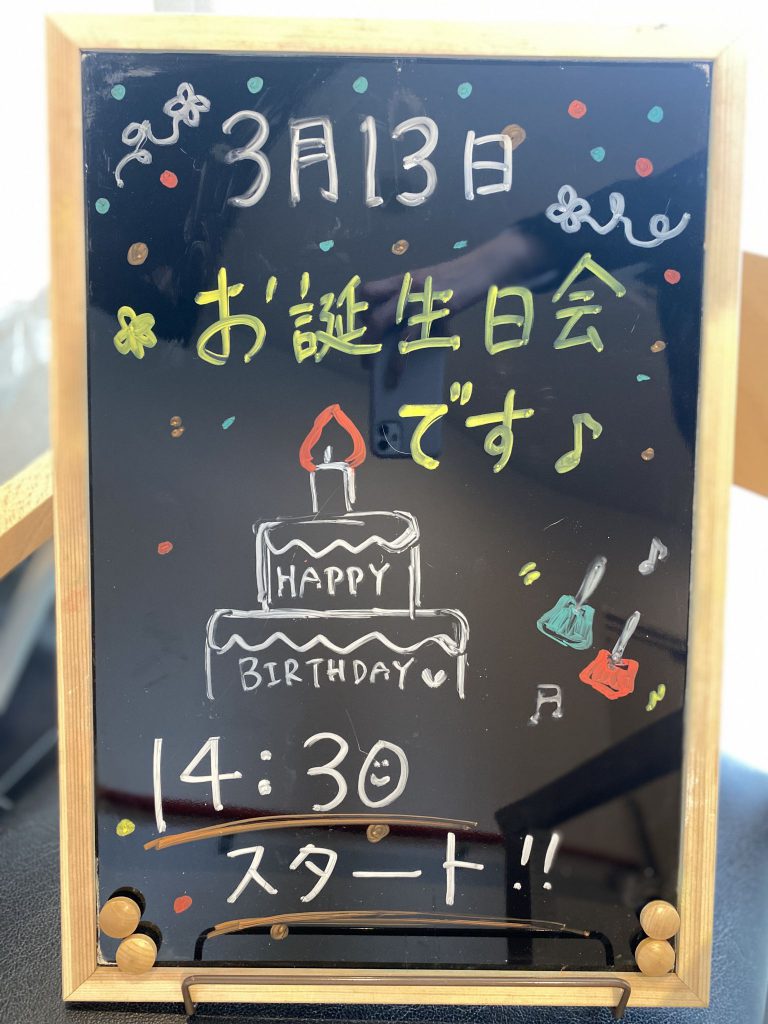 3月13日
お誕生日会
です♪
HAPPY
BIRTHDAY
14:30
スタート!!